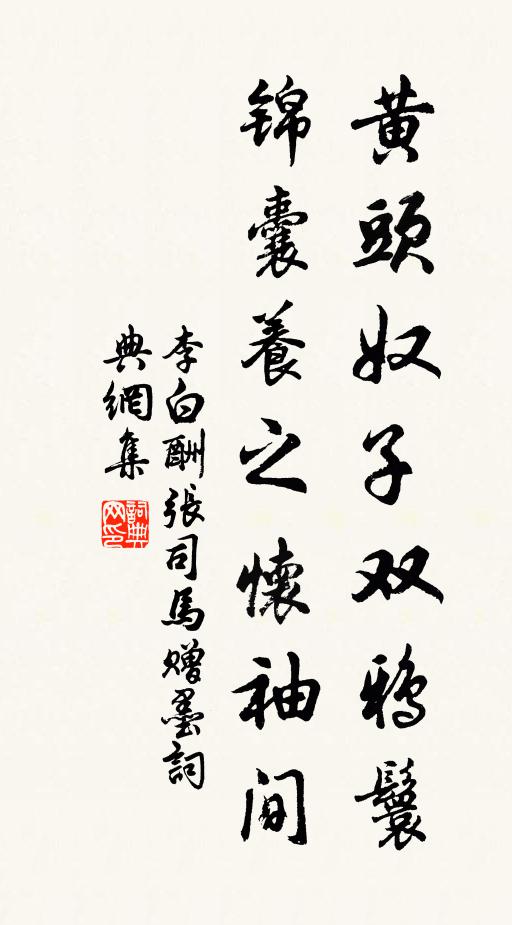 黄頭奴子双鸦鬟
锦囊養之懷袖间
李白酬張司馬赠墨詞
典網集
詞典网印